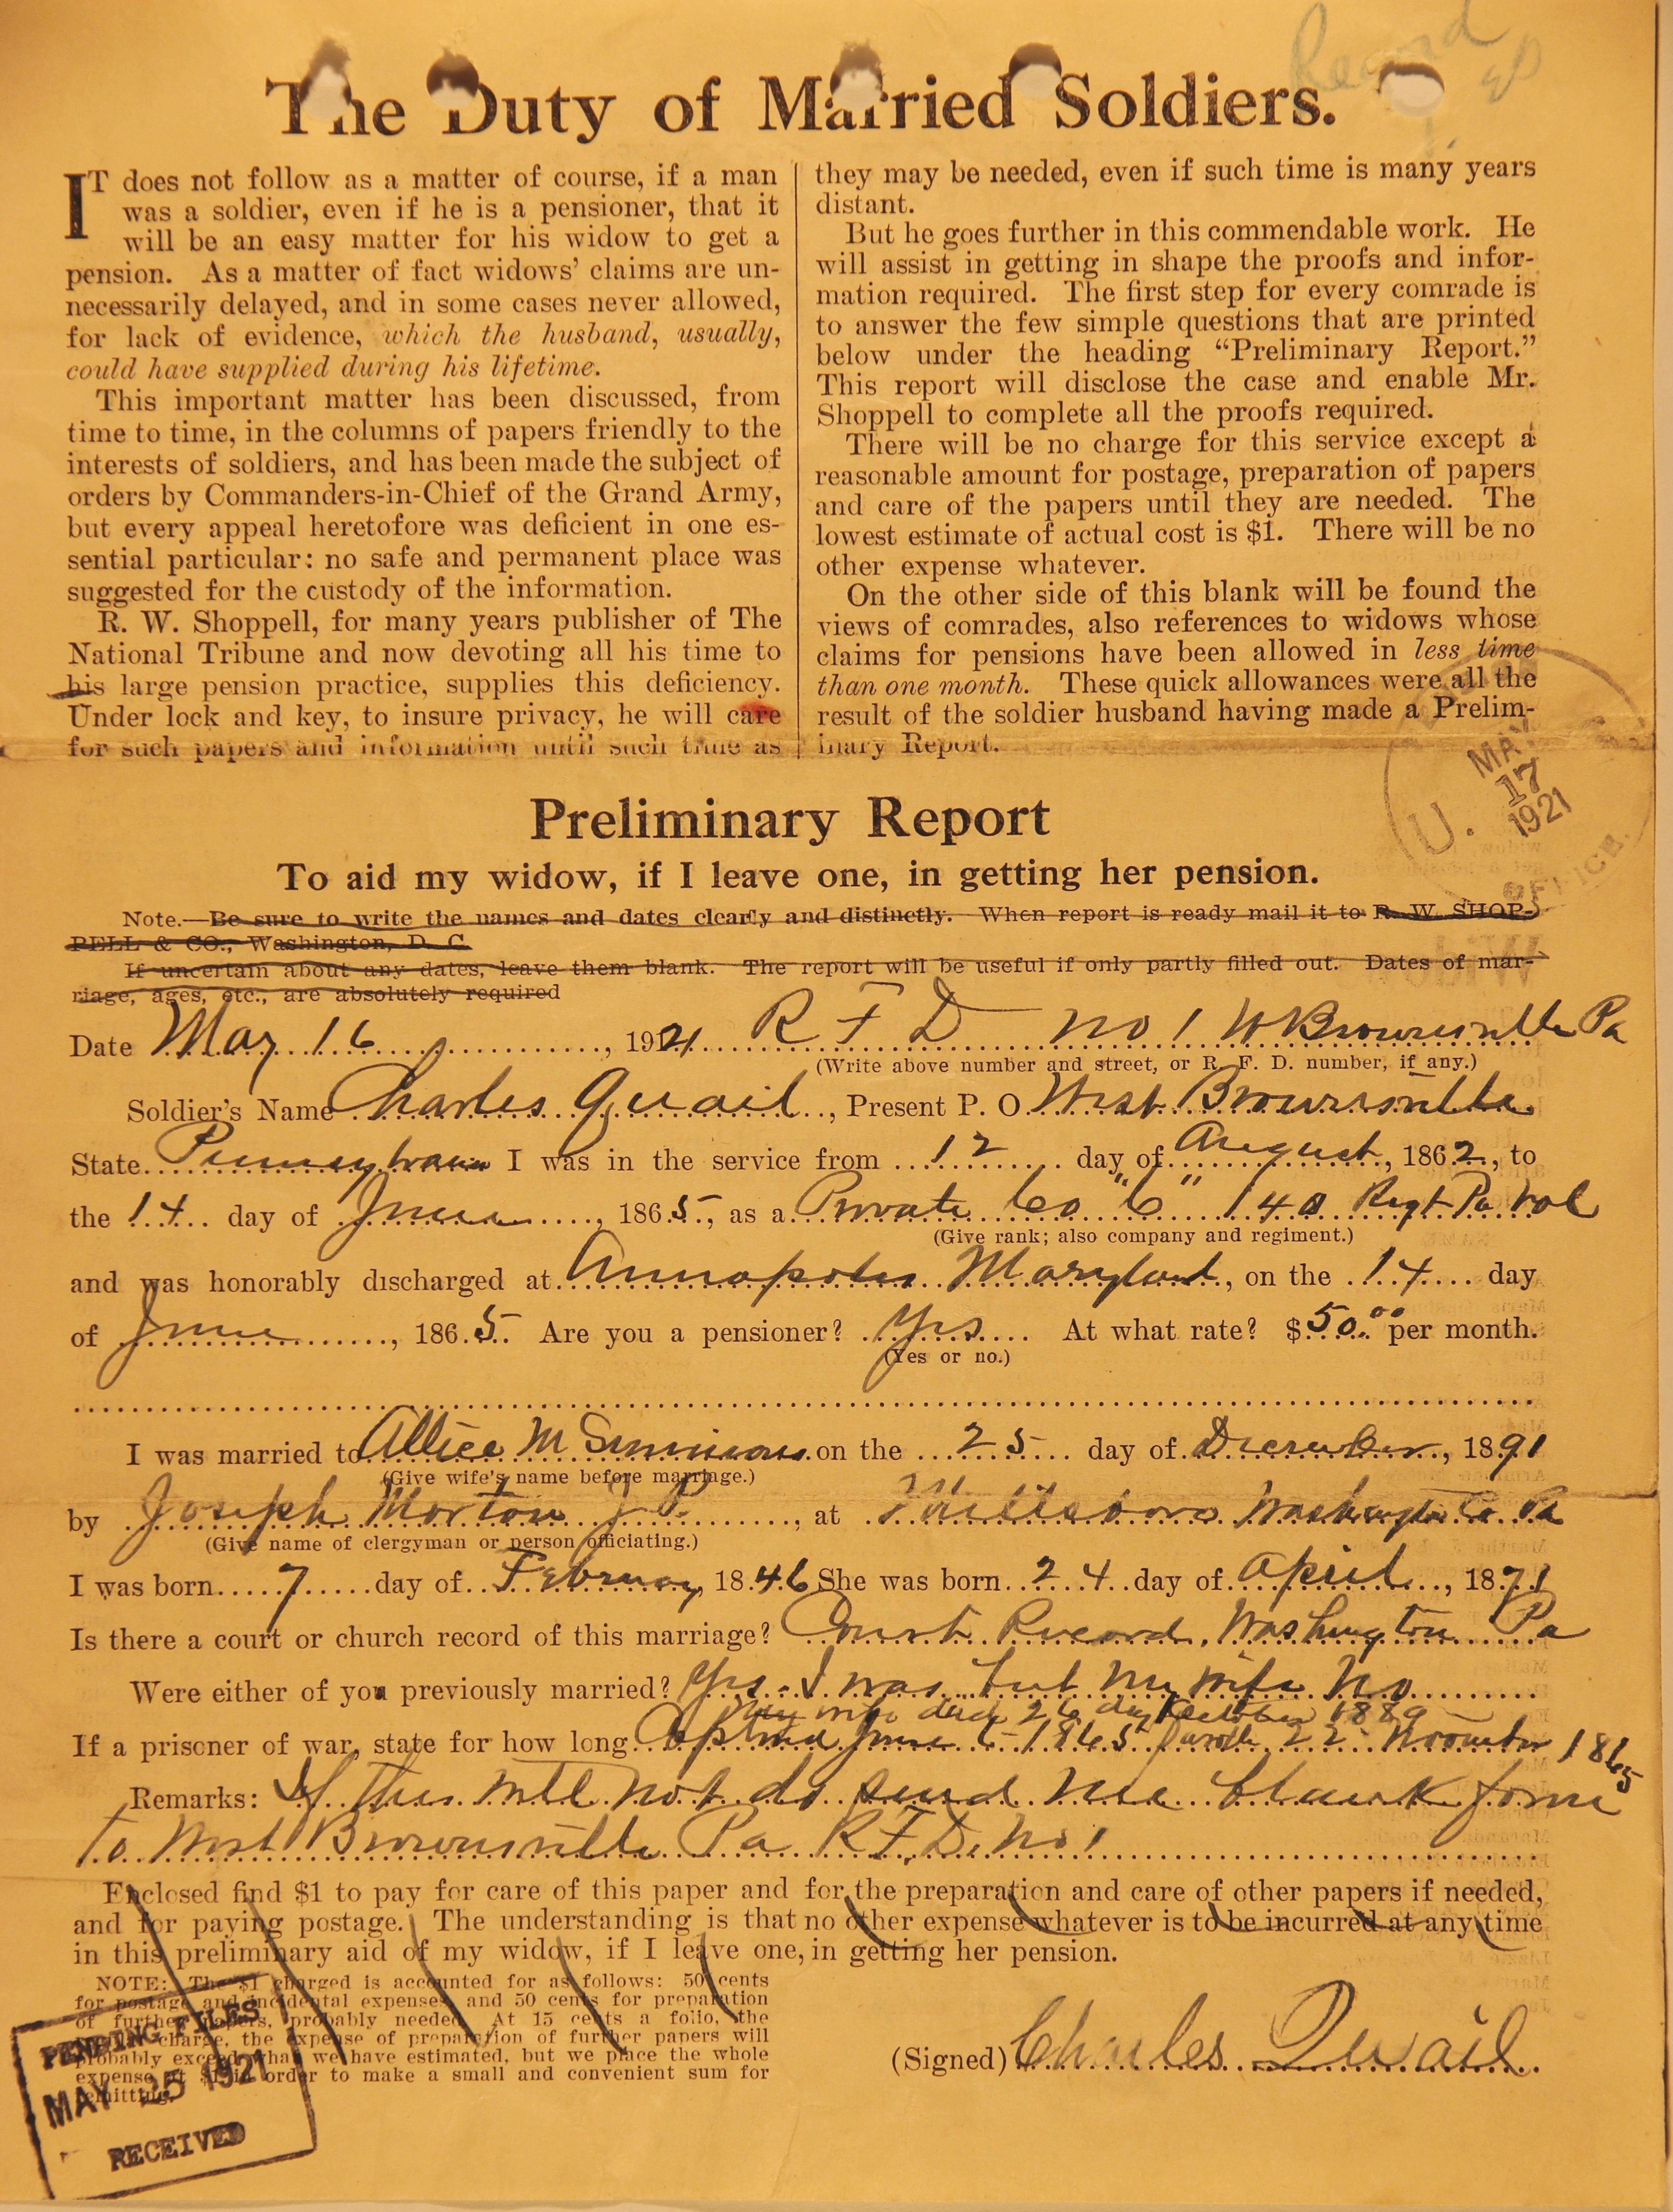 Record
The Duty of Married Soldiers.
IT does not follow as a matter of course, if a man
was a soldier, even if he is a pensioner, that it
will be an easy matter for his widow to get a
pension. As a matter of fact widows' claims are un-
necessarily delayed, and in some cases never allowed,
for lack of evidence, which the husband, usually,
could have supplied during his lifetime.
This important matter has been discussed, from
time to time, in the columns of papers friendly to the
interests of soldiers, and has been made the subject of
orders by Commanders-in-Chief of the Grand Army,
but every appeal heretofore was deficient in one es-
sential particular: no safe and permanent place was
suggested for the custody of the information.
R. W. Shoppell, for many years publisher of The
National Tribune and now devoting all his time to
his large pension practice, supplies this deficiency.
Under lock and key, to insure privacy, he will care
for such papers and information until such time as
they may be needed, even if such time is many years
distant.
But he goes further in this commendable work. He
will assist in getting in shape the proofs and infor-
mation required. The first step for every comrade is
to answer the few simple questions that are printed
below under the heading "Preliminary Report."
This report will disclose the case and enable Mr.
Shoppell to complete all the proofs required.
There will be no charge for this service except a
reasonable amount for postage, preparation of papers
and care of the papers until they are needed. The
lowest estimate of actual cost is $1. There will be no
other expense whatever.
On the other side of this blank will be found the
views of comrades, also references to widows whose
claims for pensions have been allowed in less time
than one month. These quick allowances were all the
result of the soldier husband having made a Prelim-
inary Report.
U. S. OFFICE.
MAY
17
1921
Preliminary Report
To aid my widow, if I leave one, in getting her pension.
Note.—Be sure to write the names and dates clearly and distinctly. When report is ready mail it to R. W. SHOP-
PELL & CO., Washington, D. C.
If uncertain about any dates, leave them blank. The report will be useful if only partly filled out. Dates of mar-
riage, ages, etc., are absolutely required
Date May 16, 1921 R F D no 1 W Brownsville Pa
(Write above number and street, or R. F. D. number, if any.)
Soldier's Name Charles Quail, Present P. O. West Brownsville
State Pennsylvania I was in the service from 12 day of August, 1862, to
the 14 day of June, 1865, as a Private Co "C" 140 Regt Pa Vol
(Give rank; also company and regiment.)
and was honorably discharged at Annapolis Maryland, on the 14 day
of June, 1865. Are you a pensioner? Yes At what rate? $50.00 per month.
(Yes or no.)
I was married to Allice M Simmons on the 25 day of December, 1891
(Give wife's name before marriage.)
by Joseph Morton J P, at Hillsboro Washington Co Pa
(Give name of clergyman or person officiating.)
I was born 7 day of February, 1846 She was born 24 day of April, 1871
Is there a court or church record of this marriage? Court Record, Washington Pa
Were either of you previously married? Yes. I was but my wife no
my wife died 26 day October 1889
If a prisoner of war, state for how long Captured June 6-1865 22 November 1865
Remarks: If this will not do send me blank form
to West Brownsville Pa R F D. no 1
Enclosed find $1 to pay for care of this paper and for the preparation and care of other papers if needed,
and for paying postage. The understanding is that no other expense whatever is to be incurred at any time
in this preliminary aid of my widow, if I leave one, in getting her pension.
NOTE: The $1 charged is accounted for as follows: 50 cents
for postage and incidental expenses and 50 cents for preparation
of further papers, probably needed. At 15 cents a folio, the
charge, the expense of preparation of further papers will
probably exceed what we have estimated, but we place the whole
expense at $1 in order to make a small and convenient sum for
remitting.
(Signed) Charles Quail
PENDING FILES
MAY 25 1921
RECEIVED